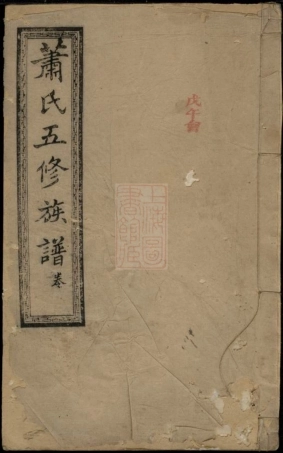 蕭氏五修族譜卷
戊午
上海圖
書館藏